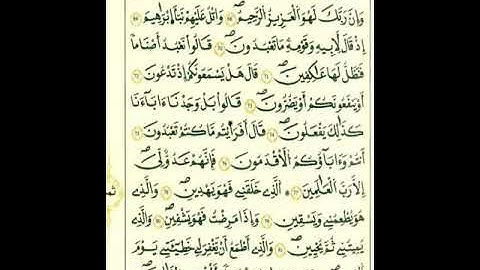 وَإِنَّ رَبَّكَ لَهُوَ الْعَزِيزُ الرَّحِيمُ ۖ وَاتْلُ عَلَيْهِمْ نَبَأَ إِبْرَٰهِيمَ
إِذْ قَالَ لِأَبِيهِ وَقَوْمِهِ مَا تَعْبُدُونَ ۖ قَالُوا نَعْبُدُ أَصْنَاماً
فَنَظَلُّ لَهَا عَٰكِفِينَ ۖ قَالَ هَلْ يَسْمَعُونَكُمْ إِذْ تَدْعُونَ
أَوْ يَنفَعُونَكُمْ أَوْ يَضُرُّونَ ۖ قَالُوا بَلْ وَجَدْنَا ءَابَآءَنَا
كَذَٰلِكَ يَفْعَلُونَ ۖ قَالَ أَفَرَٰيْتُم مَّا كُنتُمْ تَعْبُدُونَ
أَنتُمْ وَءَابَآؤُكُمُ الْأَقْدَمُونَ ۖ فَإِنَّهُمْ عَدُوٌّ لِّيَ
إِلَّا رَبَّ الْعَٰلَمِينَ ۞ الَّذِي خَلَقَنِي فَهُوَ يَهْدِينِ ۖ وَالَّذِي
هُوَ يُطْعِمُنِي وَيَسْقِينِ ۖ وَإِذَا مَرِضْتُ فَهُوَ يَشْفِينِ ۖ وَالَّذِي
يُمِيتُنِي ثُمَّ يُحْيِينِ ۖ وَالَّذِي أَطْمَعُ أَنْ يَّغْفِرَ لِي خَطِيٓـَٔتِي يَوْمَ